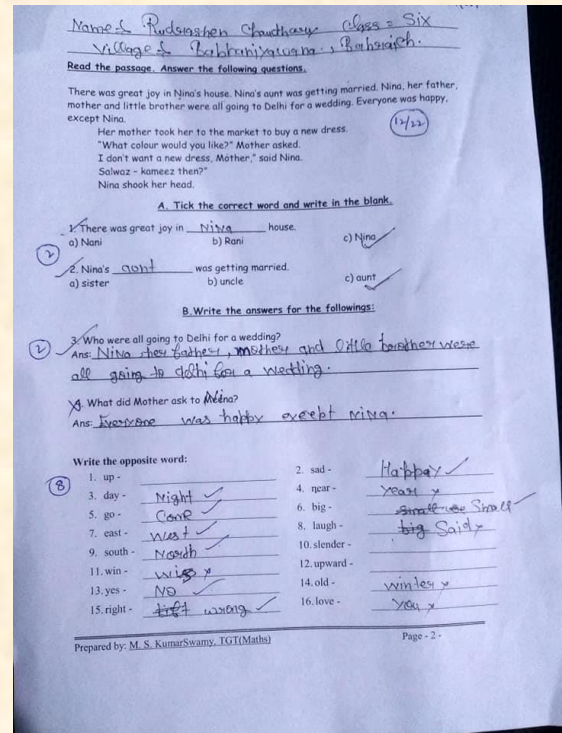 Name:- Rudrashen Chaudhary Class = Six
Village:- Babhaniyawana, Bahraich.
Read the passage. Answer the following questions.
There was great joy in Nina's house. Nina's aunt was getting married. Nina, her father,
mother and little brother were all going to Delhi for a wedding. Everyone was happy,
except Nina.
Her mother took her to the market to buy a new dress.
"What colour would you like?" Mother asked.
I don't want a new dress, Mother," said Nina.
Salwaz - kameez then?"
Nina shook her head.
12/22
A. Tick the correct word and write in the blank.
1. There was great joy in Nina house.
a) Nani b) Rani c) Nina
2
2. Nina's aont was getting married.
a) sister b) uncle c) aunt
B. Write the answers for the followings:
2
3. Who were all going to Delhi for a wedding?
Ans: Nina her father, mother and little brother were
all going to delhi for a wedding.
4. What did Mother ask to Nina?
Ans: Everyone was happy except nina.
Write the opposite word:
8
1. up - 2. sad - Happay
3. day - Night 4. near - year
5. go - Come 6. big - Small
7. east - West 8. laugh - big Said
9. south - North 10. slender -
11. win - 12. upward -
13. yes - NO 14. old - winter
15. right - left wrong 16. love - you
Prepared by: M. S. KumarSwamy, TGT(Maths) Page - 2 -